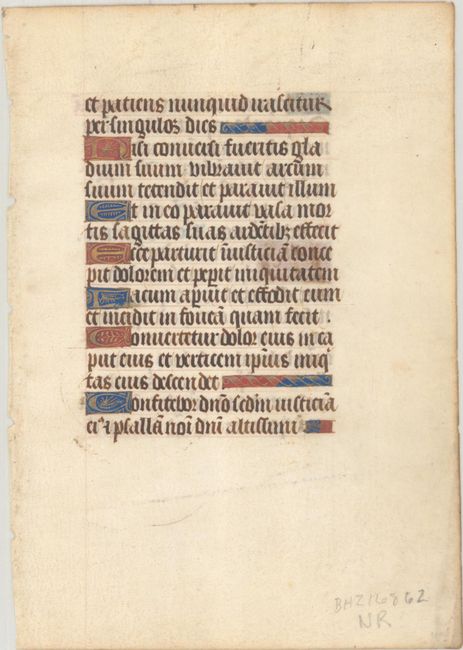 et patiens nunquid irascitur
per singulos dies
Nisi conversi fueritis gla
dium suum vibravit arcum
suum tetendit et paravit illum
Et in eo paravit vasa mor
tis sagittas suas ardētibꝫ effecit
Ecce parturit iniusticiā conce
pit dolorem et peperit iniquitatem
Lacum apruit et effodit eum
et incidit in foveā quam fecit .
Convertetur dolor eius in ca
put eius et verticem ipīus iniq̄
tas eius descendet
Confitebor dn̄o sedm̄ iusticiā
eiꝰ ⁊ psallā noī dn̄i altissimi
BHZ168 62
NR